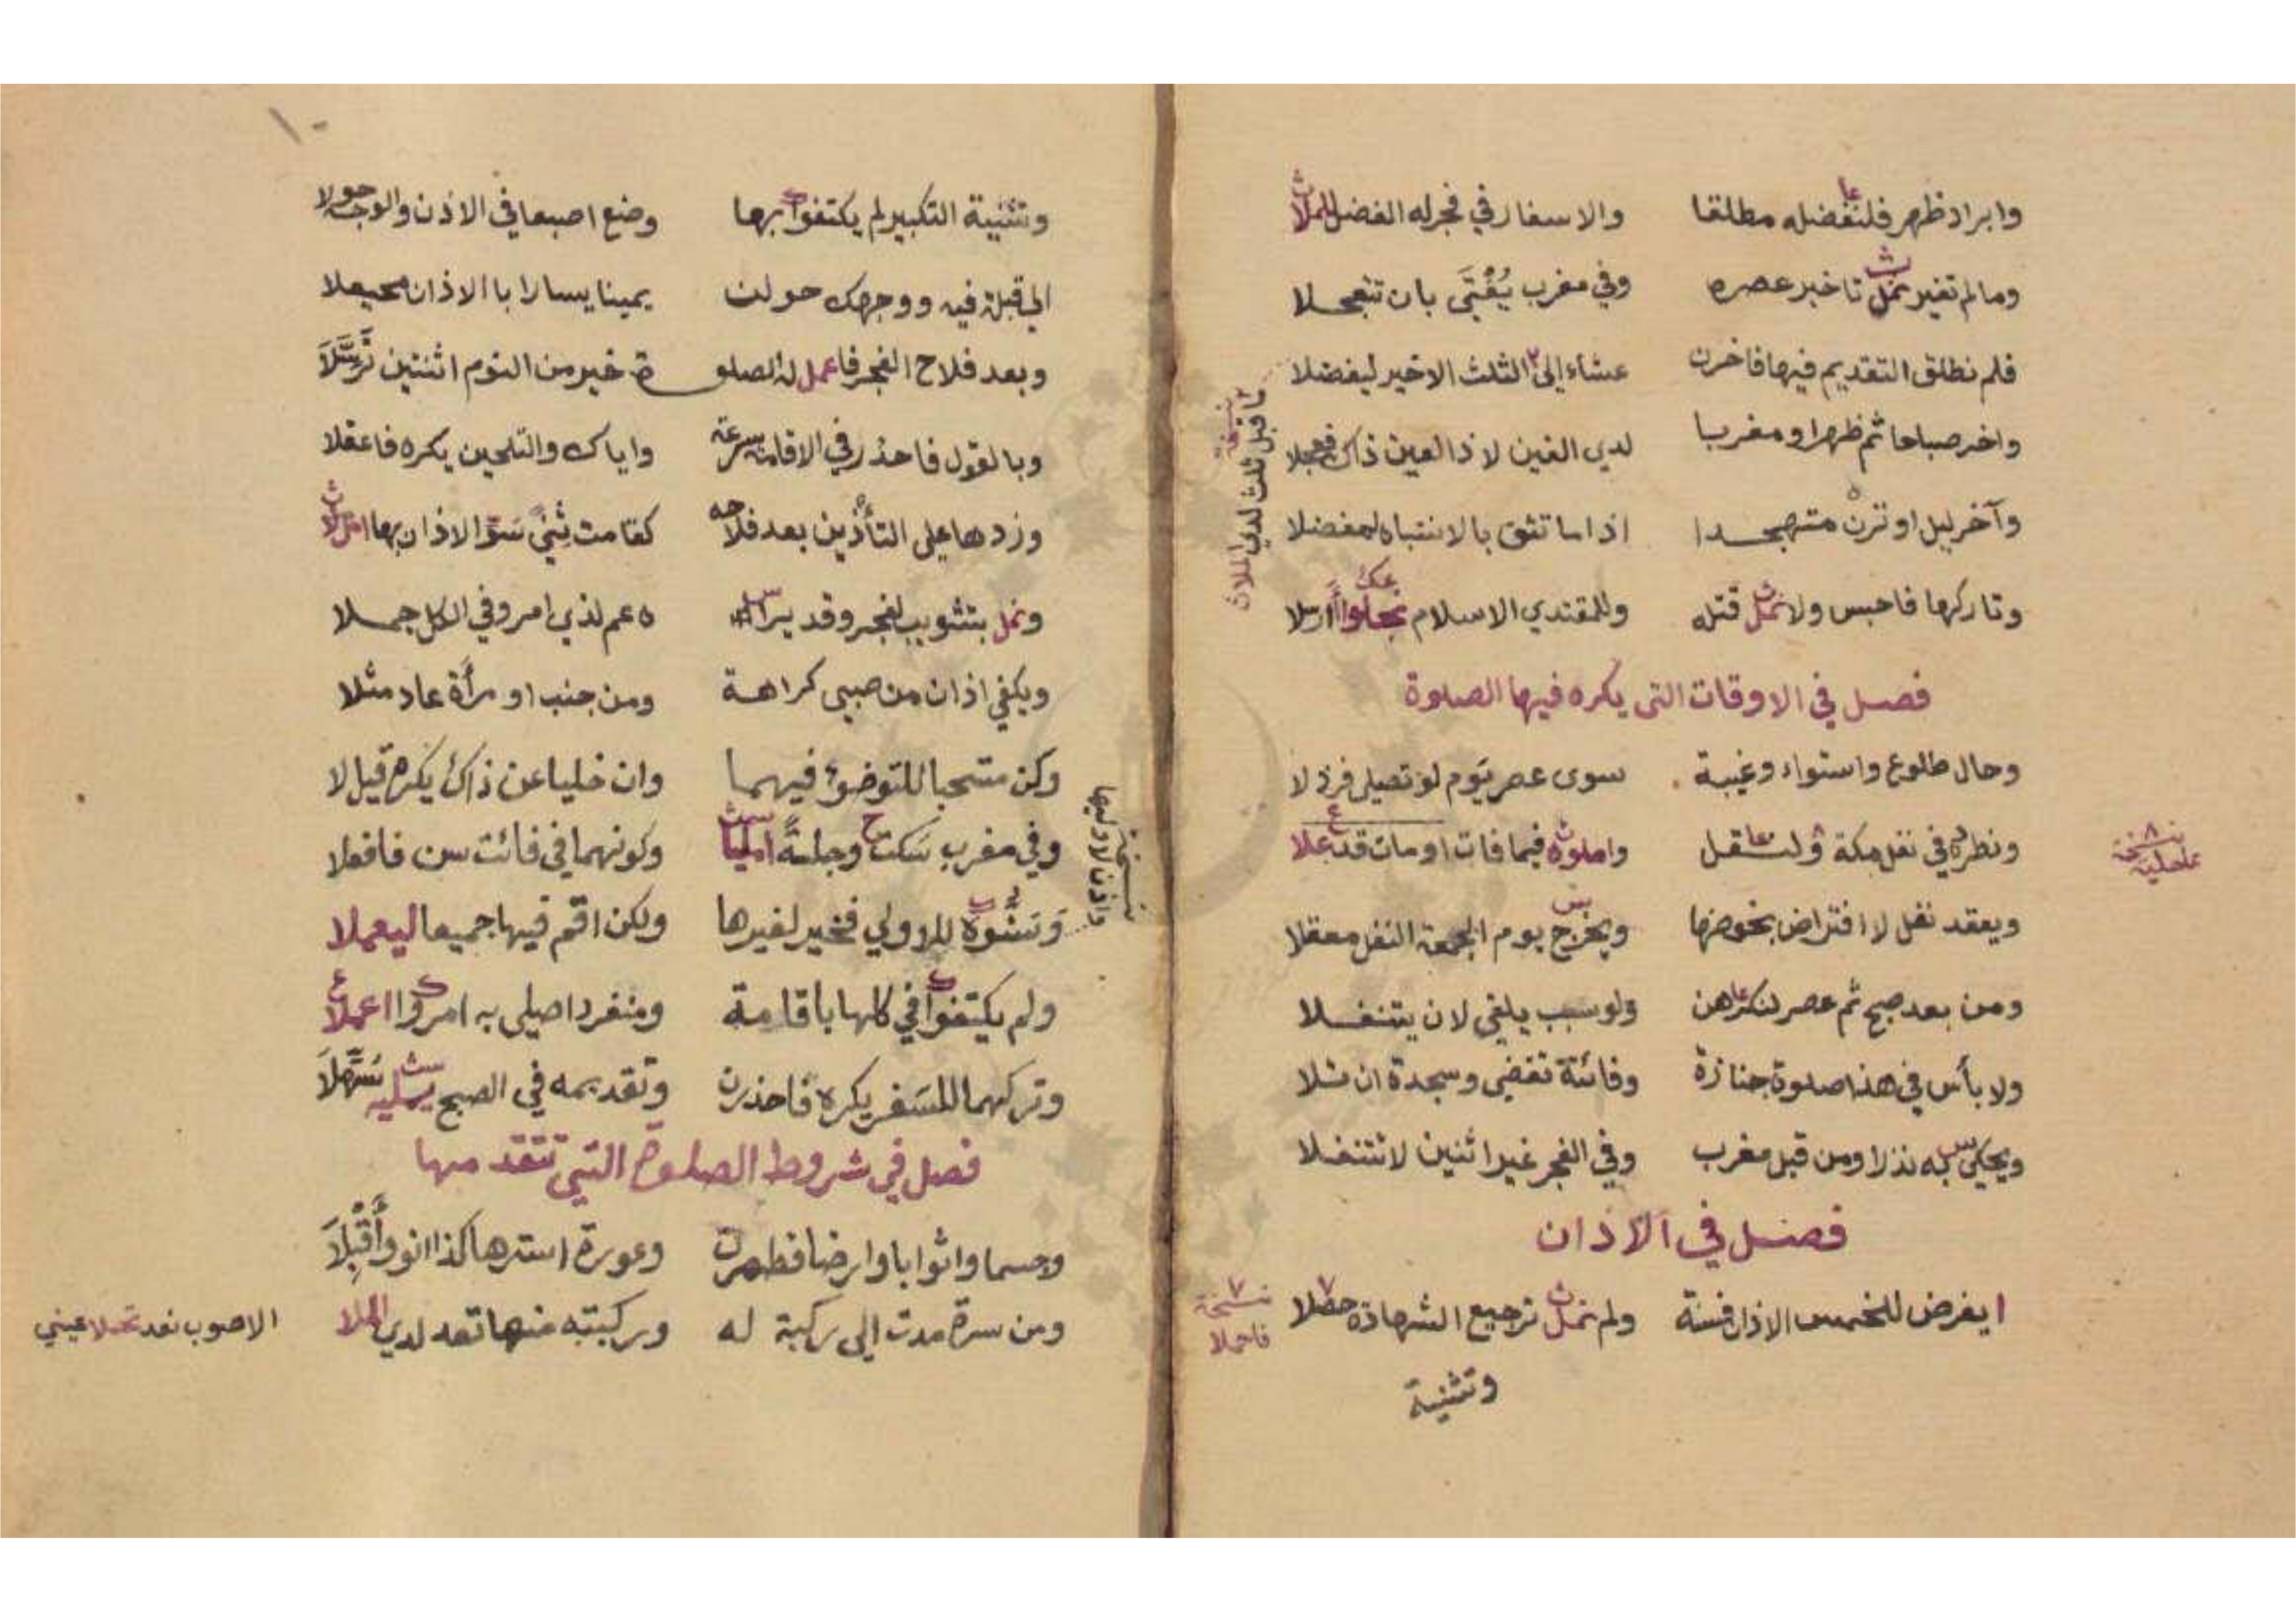 وابراد ظهر فلنفضله مطلقا والاسفار في فجر له الفضل
ومالم تغير نمل تاخير عصره وفي مغرب يُفْتَى بان تتعجلا
فلم نطلق التقديم فيها فاخرن عشاء إلى الثلث الاخير ليفضلا
واخر صباحا ثم ظهرا ومغربا لدي الغين لا ذا العين ذاك فعجلا
وآخر ليل اوترن متهجدا اذا ما تثق بالانتباه لمفضلا
وتاركها فاحبس ولا نمل قتله وللمقتدي الاسلام
فصل في الاوقات التى يكره فيها الصلوة
وحال طلوع واستواء وغيبة سوى عصر يوم لو تصلي فرد لا
ونطرد في نفل مكة واملوه فيما فات او مات قد علا
نسخة
ويعقد نفل لا افتراض بخوضها ويخرج يوم الجمعة النفل معقلا
ومن بعد صبح ثم عصر لنكرهن ولو سبب يلفي لان يتنفلا
ولا بأس في هذا صلوة جنازة وفائتة تقضى وسجدة ان تلا
ويحكى به نذرا ومن قبل مغرب وفي الفجر غير اثنين لا تتنفلا
فصل في الاذان
ايفرض للخمس الاذان فسنة ولم نمل ترجيع الشهادة
نسخة
وتثنية
نسخة
ما قبل ثلث لدي الملا
١٠
وتثنية التكبير لم يكتفوا بها وضع اصبعا في الاذن والوجه حولا
الى قبلة فيه ووجهك حولن يمينا يسارا با الاذان محيعلا
وبعد فلاح الفجر فاعمل له الصلو ة خير من النوم اثنتين تَرَسَّلَا
وبالقول فاحذر في الاقامة سرعة واياك والتلحين يكره فاعقلا
وزدها على التأذين بعد فلاحه كقامت ثنى سوا الاذان بها
ونمل بتثويب لفجر وقد يرا ه عم لذي امر وفي الكل جملا
ويكفي اذان من صبي كراهة ومن جنب او مرأة عاد مثلا
وكن مستحبا للتوضؤ فيهما وان خليا عن ذاك يكره قيل لا
وفي مغرب سكت وجلسة وكونهما في فائت سن فافعلا
للاولي فخير لغيرها ولكن اقم فيها جميعا ليعملا
نسخة
واذن لاوليها
ولم يكتفوا في كلها با قامة ومنفردا صلى به امروا اعملا
وتركهما للسفر يكره فاحذرن وتقديمه في الصبح يمليه سَهَّلَا
فصل في شروط الصلوة التي تتقدمها
وجسما واثوابا وارضا فطهرن وعورة استرها كذا انو وأَقْبِلَا
ومن سرة مدت الى ركبة له وركبته منها تعد لدي الملا
الاصوب نعد تحملا عيني